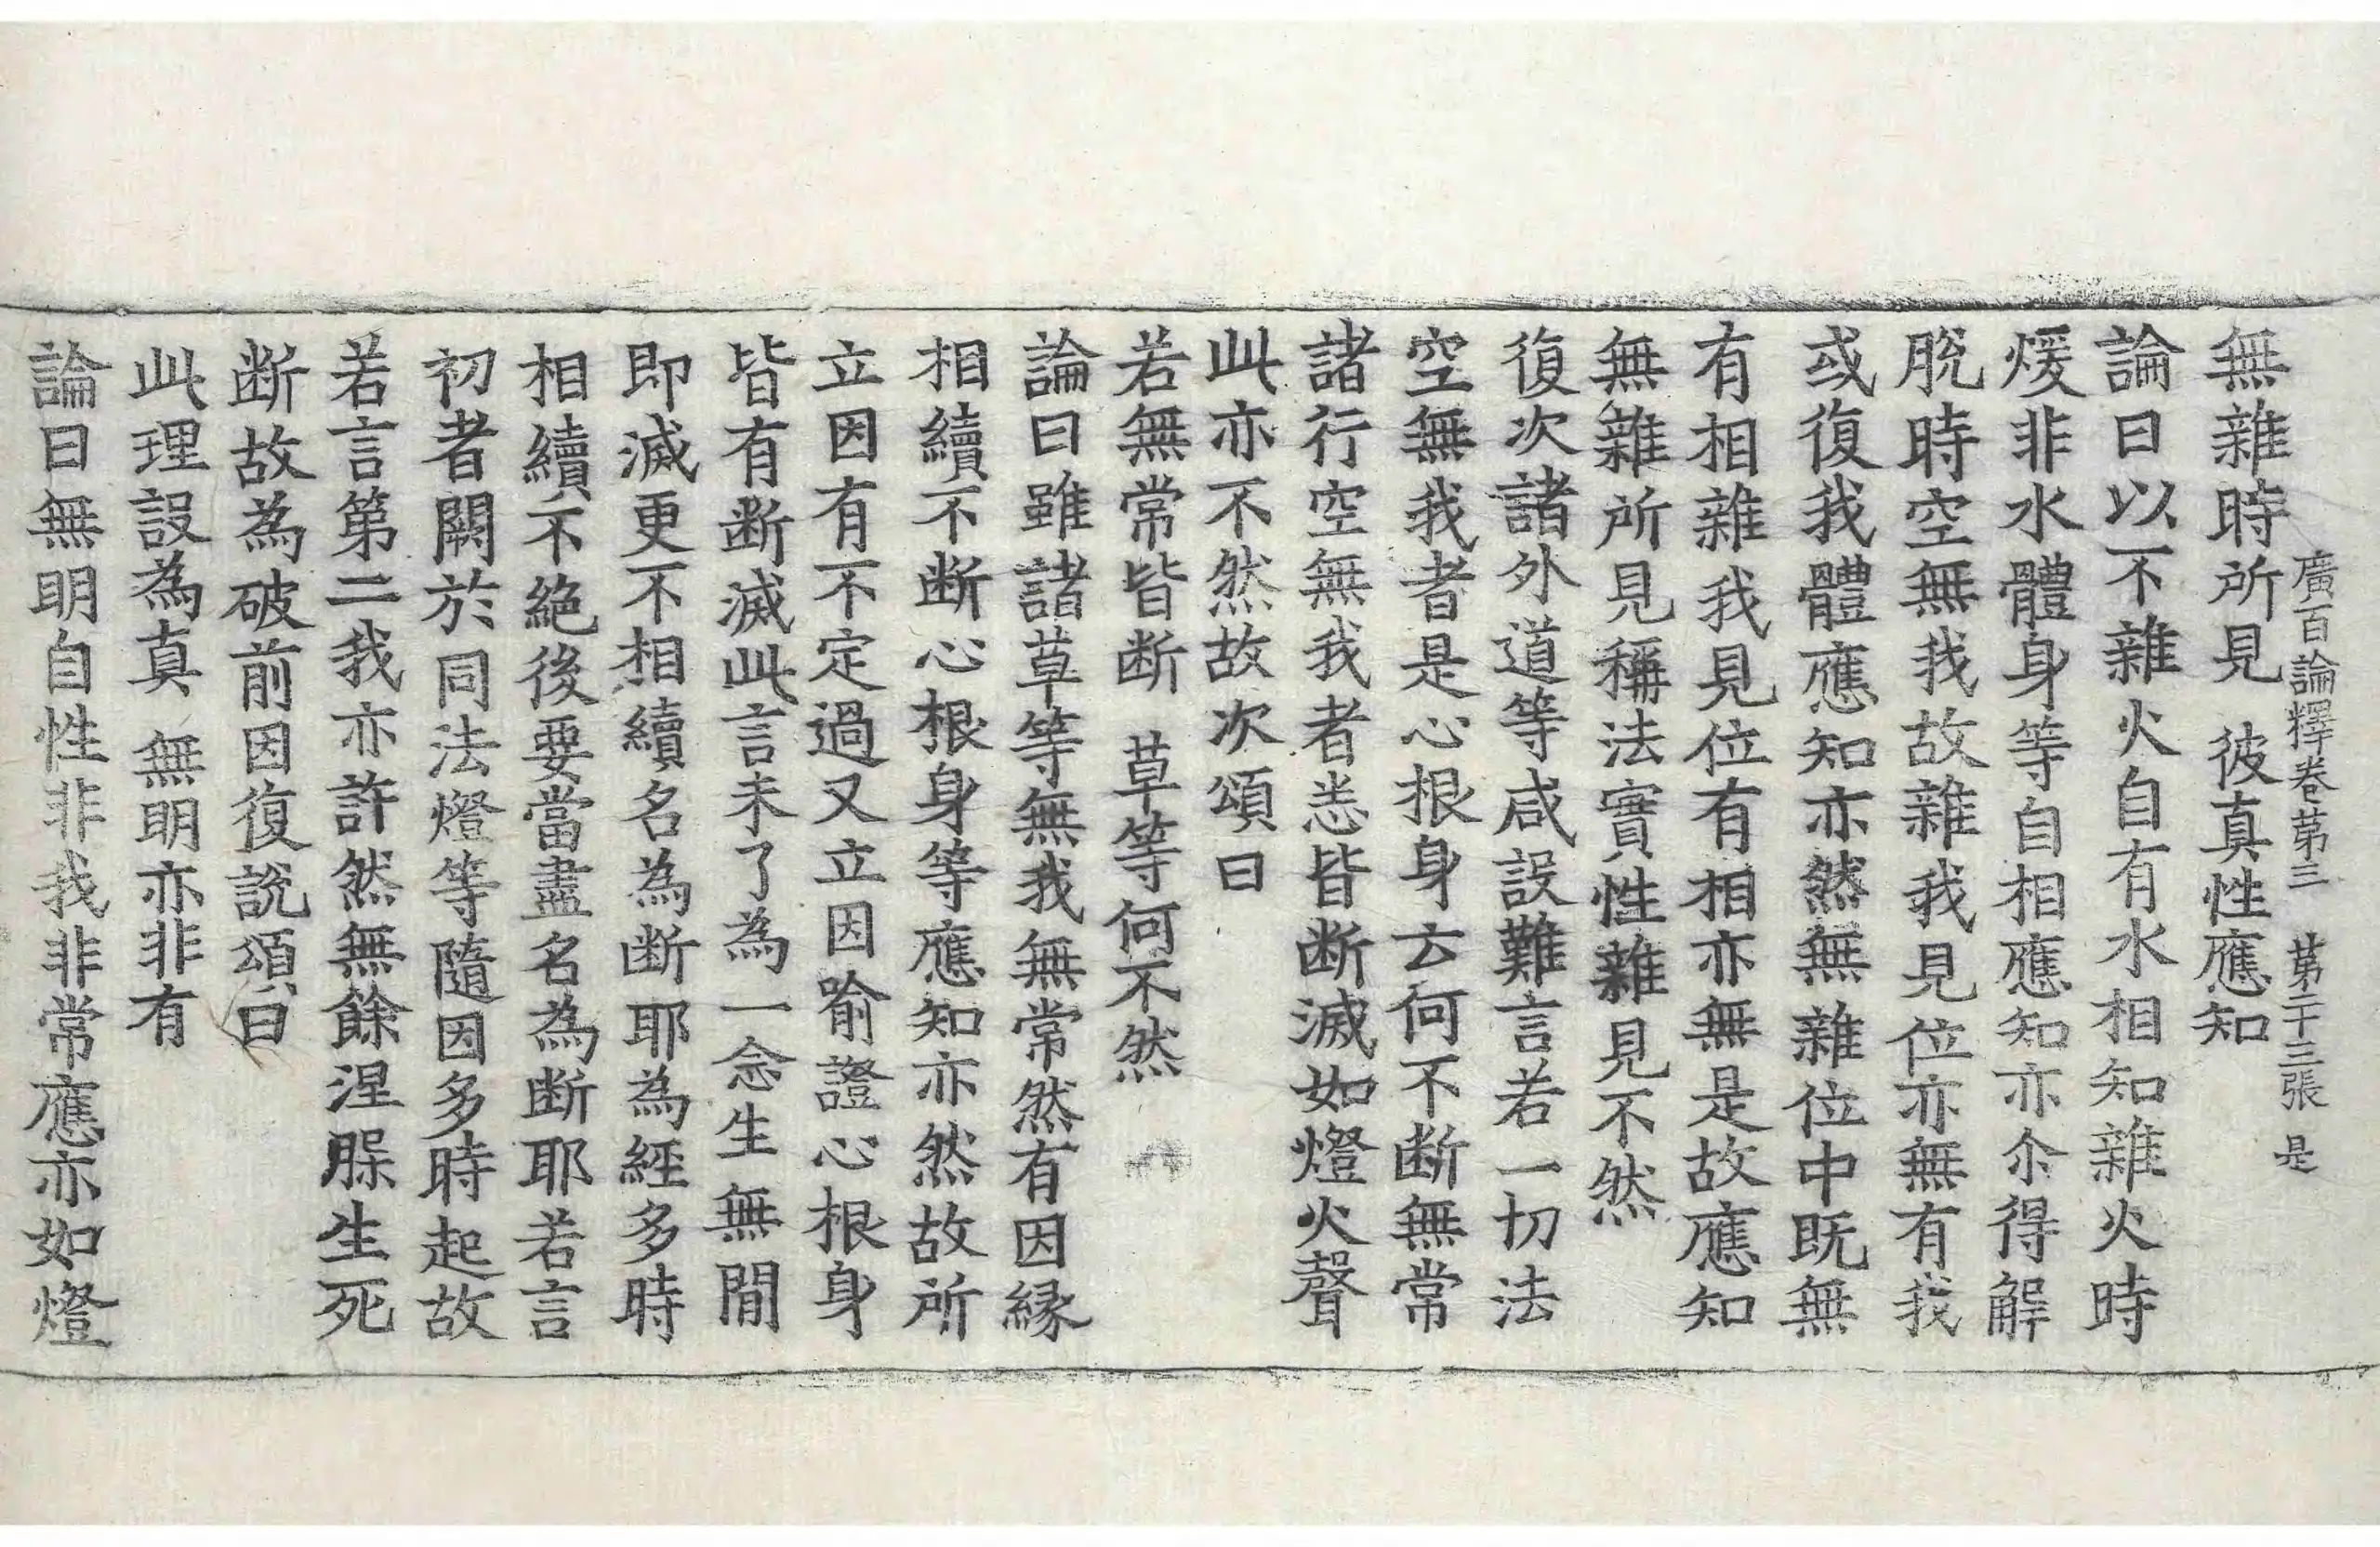 廣百論釋卷第三　第二十三張　是
無雜時所見　彼真性應知
論曰以不雜火自有水相知雜火時
煖非水體身等自相應知亦尒得解
脫時空無我故雜我見位亦無有我
或復我體應知亦然無雜位中既無
有相雜我見位有相亦無是故應知
無雜所見稱法實性雜見不然
復次諸外道等咸設難言若一切法
空無我者是心根身云何不断無常
諸行空無我者悉皆断滅如燈火聲
此亦不然故次頌曰
若無常皆断　草等何不然
論曰雖諸草等無我無常然有因緣
相續不断心根身等應知亦然故所
立因有不定過又立因喻證心根身
皆有断滅此言未了為一念生無間
即滅更不相續名為断耶為經多時
相續不絕後要當盡名為断耶若言
初者闕於同法燈等隨因多時起故
若言第二我亦許然無餘涅槃生死
断故為破前因復說頌曰
此理設為真　無明亦非有
論曰無明自性非我非常應亦如燈